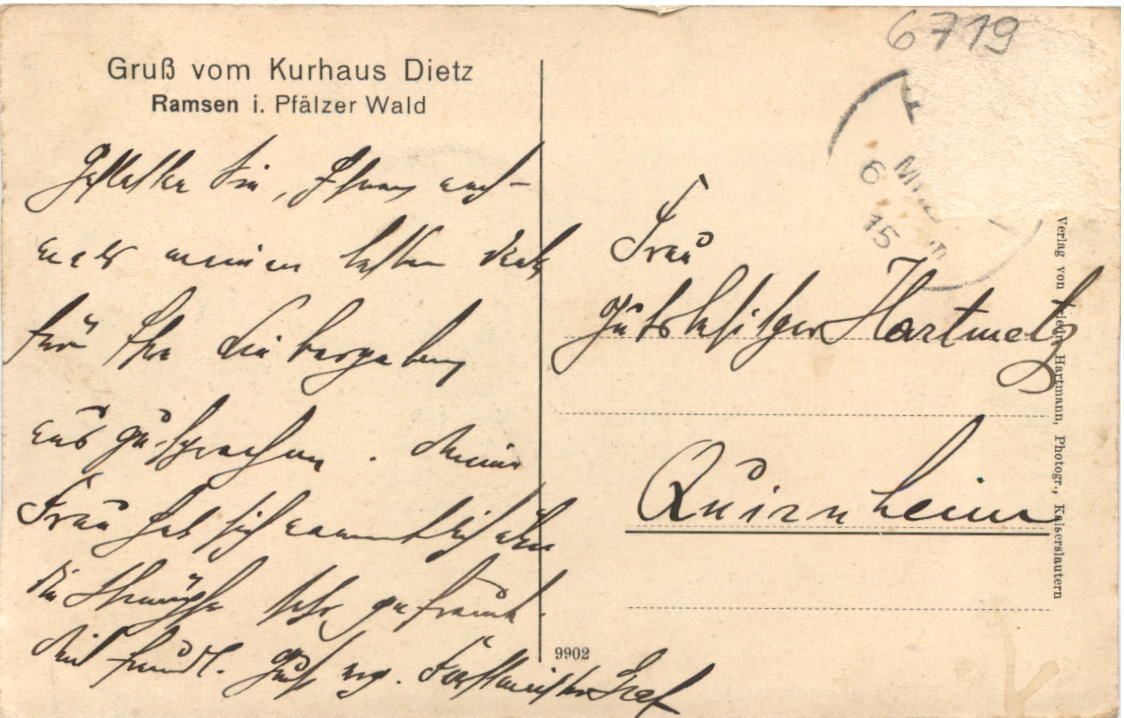 Gruß vom Kurhaus Dietz
Ramsen i. Pfälzer Wald
Gestatten Sie, Ihnen noch-
mals meinen besten Dank
für Ihre
auszusprechen. Meine
Frau hat sich namentlich über
die sehr gefreut.
Mit freundl. Gruß erg. Forstmeister Graf
9902
6719
6
15
Frau
Gutsbesitzer Hartmetz
Quirnheim
Verlag von Friedr. Hartmann, Photogr., Kaiserslautern